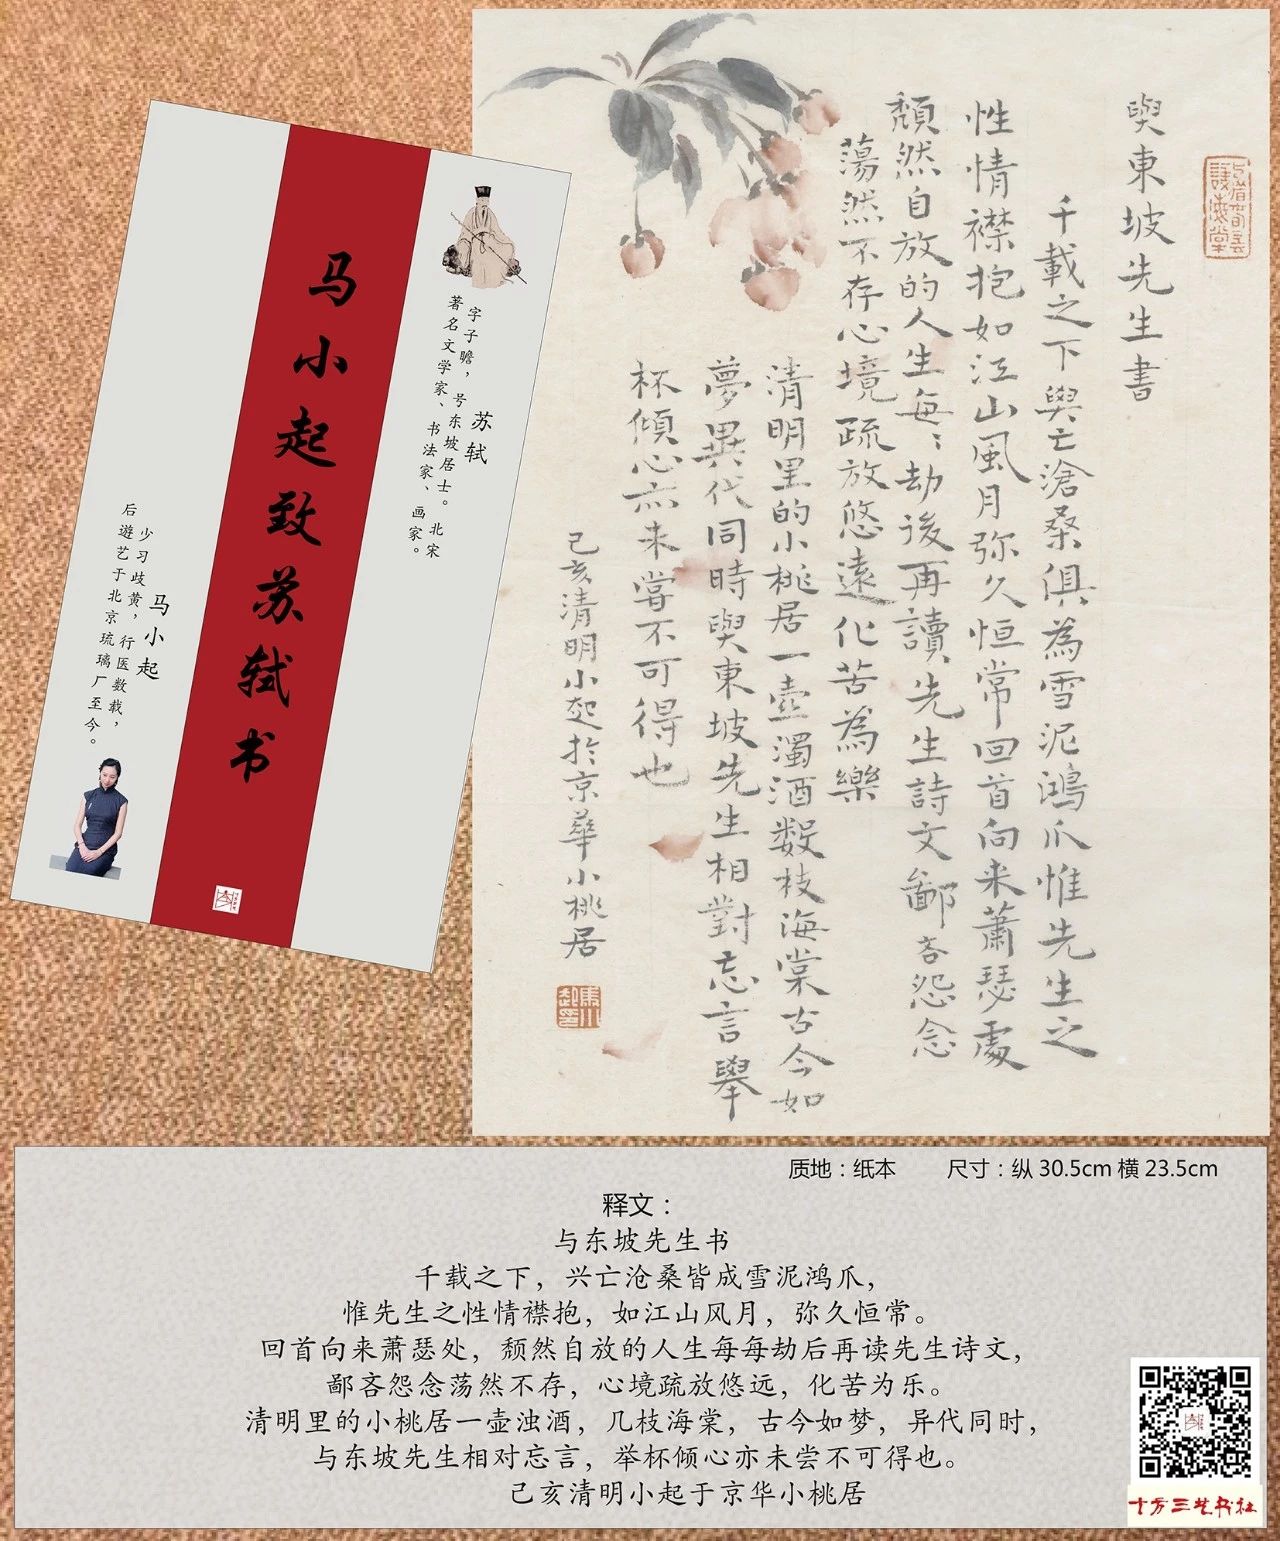 與東坡先生書
千載之下興亡滄桑俱為雪泥鴻爪惟先生之
性情襟抱如江山風月弥久恒常回首向来蕭瑟處
頹然自放的人生每〻劫後再讀先生詩文鄙吝怨念
蕩然不存心境疏放悠遠化苦為樂
清明里的小桃居一壺濁酒数枝海棠古今如
夢異代同時與東坡先生相對忘言舉
杯傾心亦未嘗不可得也
己亥清明小起於京華小桃居
马小起致苏轼书
苏轼
字子瞻，号东坡居士。北宋
著名文学家、书法家、画家。
马小起
少习歧黄，行医数载，
后遊艺于北京琉璃厂至今。
质地：纸本 尺寸：纵 30.5cm 横 23.5cm
释文：
与东坡先生书
千载之下，兴亡沧桑皆成雪泥鸿爪，
惟先生之性情襟抱，如江山风月，弥久恒常。
回首向来萧瑟处，颓然自放的人生每每劫后再读先生诗文，
鄙吝怨念荡然不存，心境疏放悠远，化苦为乐。
清明里的小桃居一壶浊酒，几枝海棠，古今如梦，异代同时，
与东坡先生相对忘言，举杯倾心亦未尝不可得也。
己亥清明小起于京华小桃居
十方三世书社